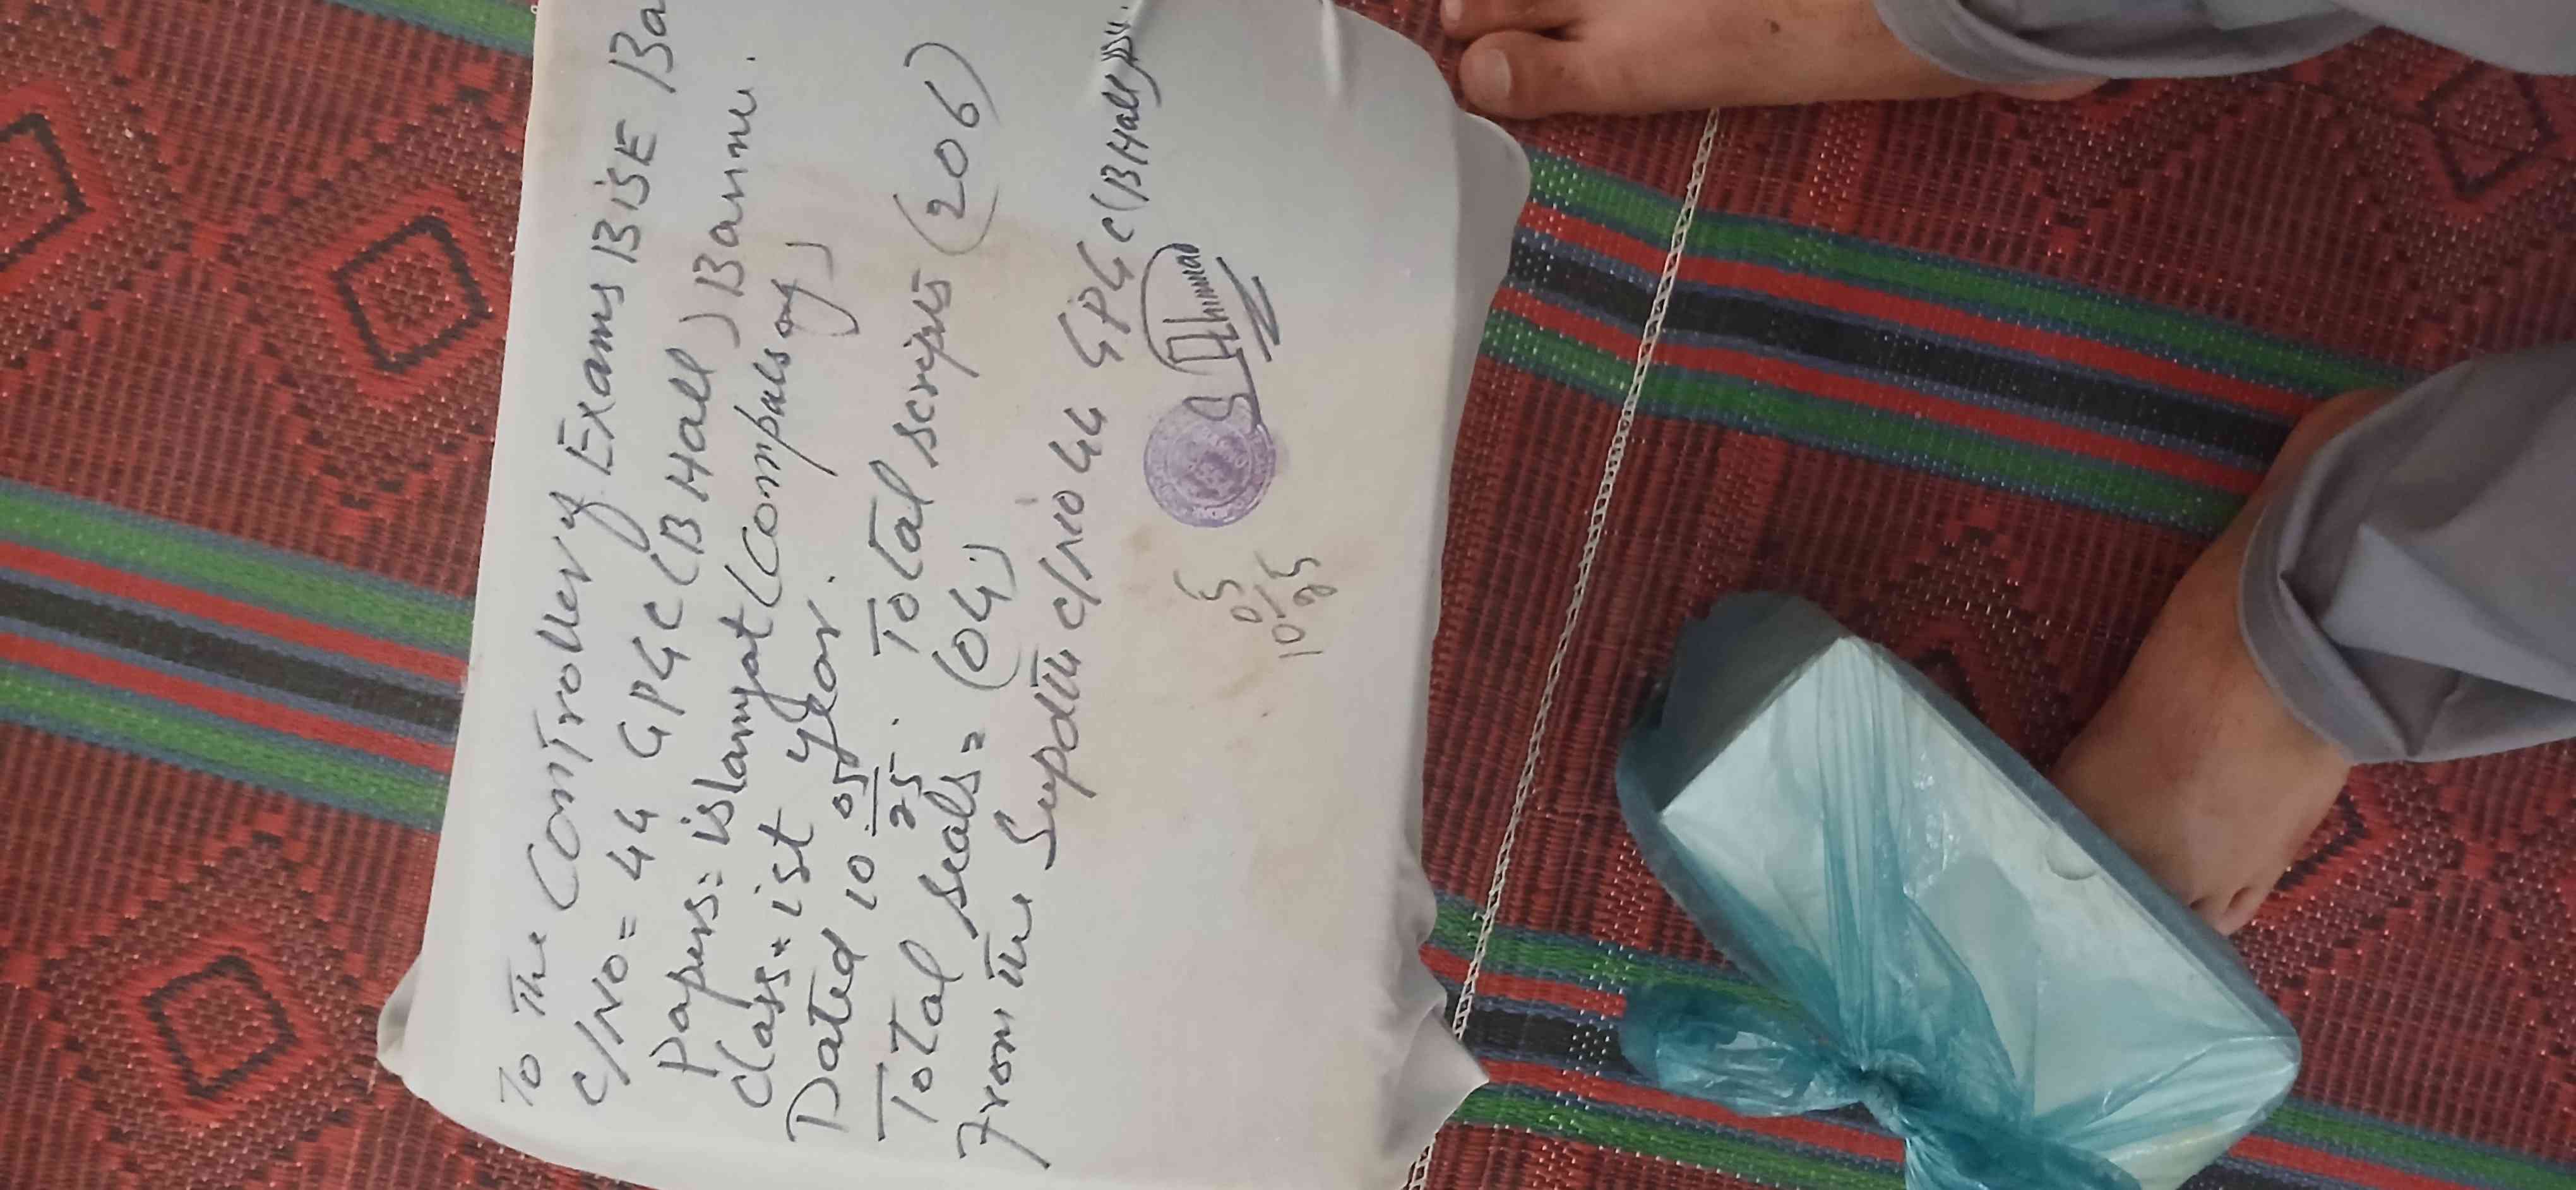 To The Controller of Exams BISE Ba
C/No = 44 GPGC (B Hall) Bannu.
Paper = islamyat (Compulsory)
Class = ist year.
Dated 10 05/25. Total scripts (206)
Total seals = (04)
From the Supdtt C/No 44 GPGC (B Hall)
10 05/25